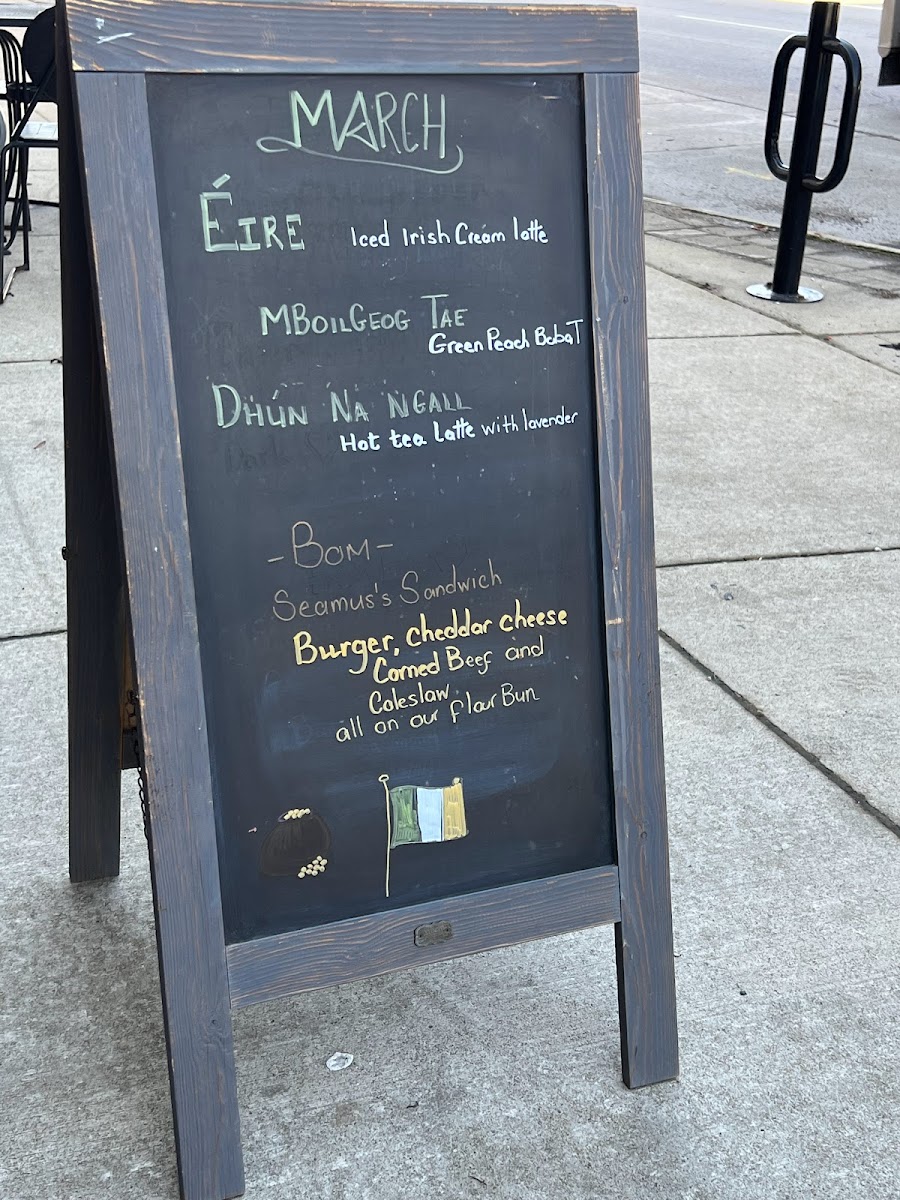 MARCH
ÉIRE Iced Irish Cream latte
MBOILGEOG TAE
Green Peach BobaT
DHÚN NA NGALL
Hot tea Latte with lavender
-BOM-
Seamus's Sandwich
Burger, cheddar cheese
Corned Beef and
Coleslaw
all on our flour Bun